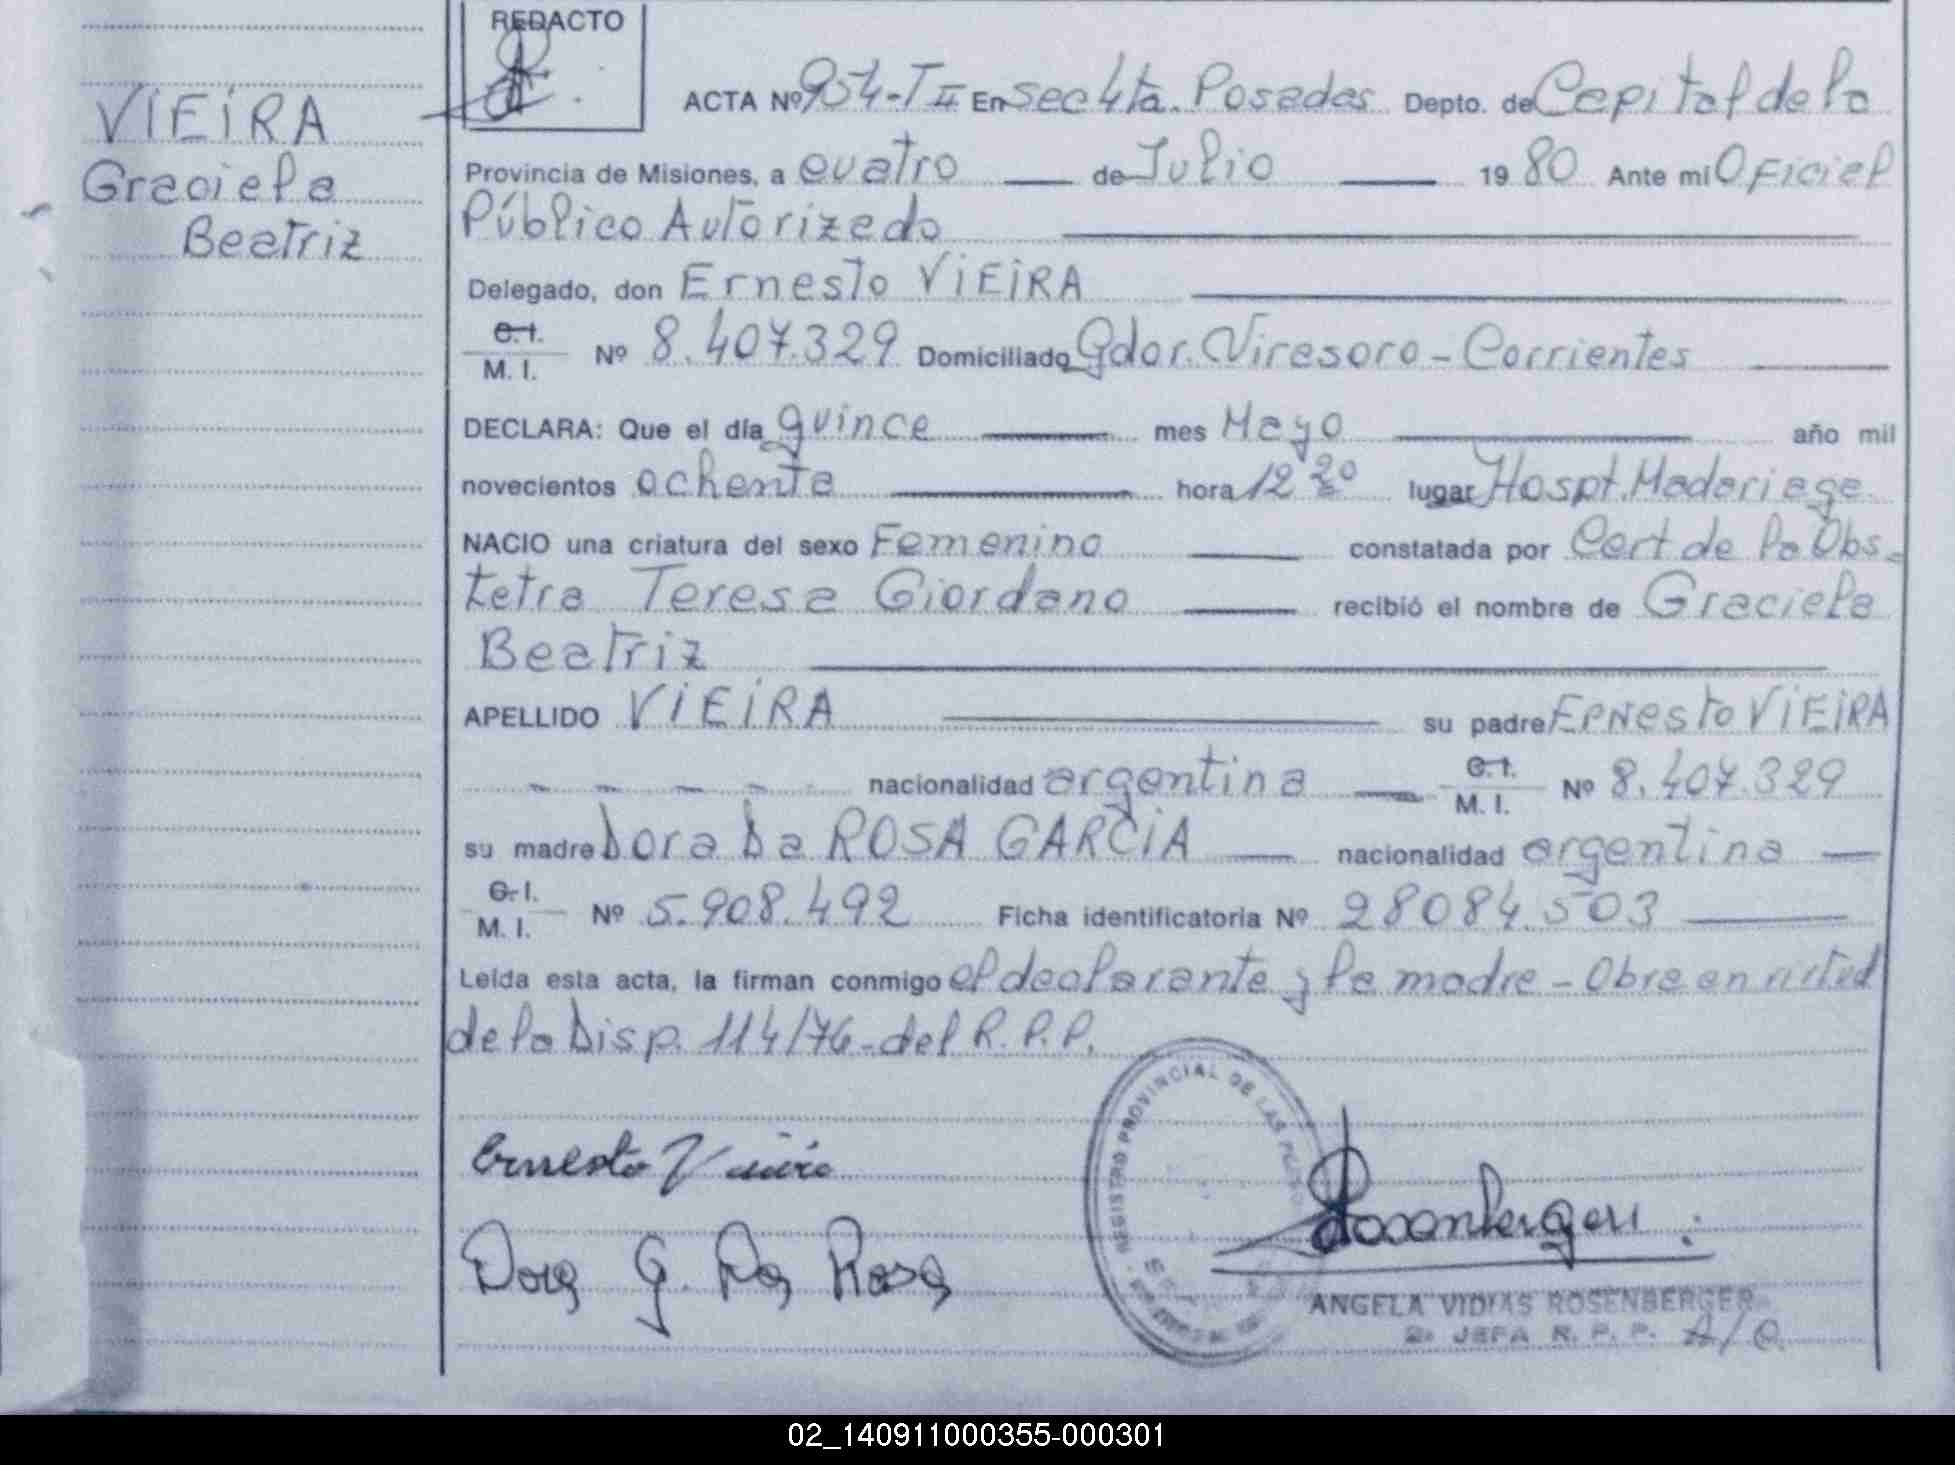 REDACTO
VIEIRA
Graciela
Beatriz
ACTA Nº 954-T II En Sec 4ta. Posadas Depto. de Capital de la
Provincia de Misiones, a cuatro de Julio 1980 Ante mi Oficial
Público Autorizado
Delegado, don Ernesto VIEIRA
C.I.
M. I. Nº 8.407.329 Domiciliado Gdor. Virasoro - Corrientes
DECLARA: Que el día quince mes Mayo año mil
novecientos ochenta hora 12 20 lugar Hospt. Madariaga
NACIO una criatura del sexo Femenino constatada por Cert de la Obs-
tetra Teresa Giordano recibió el nombre de Graciela
Beatriz
APELLIDO VIEIRA su padre Ernesto VIEIRA
nacionalidad argentina C.I. M. I. Nº 8.407.329
su madre Dora Da ROSA GARCIA nacionalidad argentina
C.I.
M. I. Nº 5.908.492 Ficha identificatoria Nº 28084.503
Leída esta acta, la firman conmigo el declarante y la madre - Obra en virtud
de la Disp. 114/76 - del R.P.P.
Ernesto Vieira
Dora G. Da Rosa
REGISTRO PROVINCIAL DE LAS
Rosenberger
ANGELA VIDIAS ROSENBERGER
2a JEFA R. P. P. A/C.
02_140911000355-000301